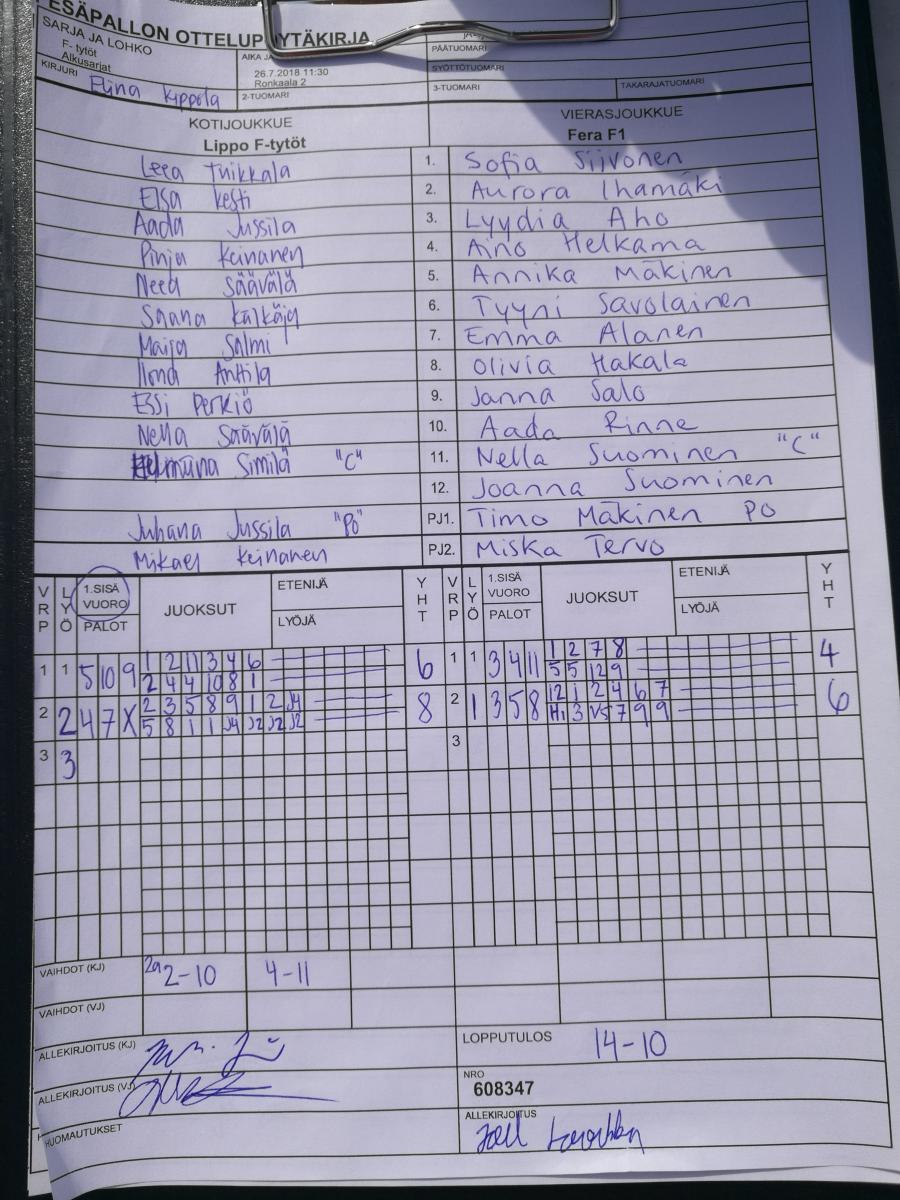 ESÄPALLON OTTELUP YTÄKIRJA
SARJA JA LOHKO
F- tytöt
Alkusarjat
AIKA JA
26.7.2018 11:30
Ronkaala 2
PÄÄTUOMARI
SYÖTTÖTUOMARI
KIRJURI Elina Kippola
2-TUOMARI
3-TUOMARI
TAKARAJATUOMARI
KOTIJOUKKUE VIERASJOUKKUE
Lippo F-tytöt Fera F1
Leea Tuikkala 1. Sofia Siivonen
Elsa Kesti 2. Aurora Ihamäki
Aada Jussila 3. Lyydia Aho
Pinja Keinänen 4. Aino Helkama
Neea Säävälä 5. Annika Mäkinen
Saana Kälkäjä 6. Tyyni Savolainen
Maija Salmi 7. Emma Alanen
Ilona Anttila 8. Olivia Hakala
Essi Perkiö 9. Janna Salo
Nella Säävälä 10. Aada Rinne
Similä "C" 11. Nella Suominen "C"
12. Joanna Suominen
Juhana Jussila "PO" PJ1. Timo Mäkinen PO
Mikael Keinänen PJ2. Miska Tervo
VRP LYÖ 1.SISÄ VUORO PALOT JUOKSUT ETENIJÄ LYÖJÄ YHT VRP LYÖ 1.SISÄ VUORO PALOT JUOKSUT ETENIJÄ LYÖJÄ YHT
1 1 5 10 9 1 2 11 3 4 6 6 1 1 3 4 11 1 2 7 8 4
2 4 4 10 8 1 5 5 12 9
2 2 4 7 X 2 3 5 8 9 1 2 J4 8 2 1 3 5 8 12 1 2 4 6 7 6
5 8 1 1 J4 J2 J2 J2 H1 3 V5 7 9 9
3 3 3
VAIHDOT (KJ) 2a 2-10 4-11
VAIHDOT (VJ)
ALLEKIRJOITUS (KJ)
LOPPUTULOS 14-10
ALLEKIRJOITUS (VJ)
NRO
608347
HUOMAUTUKSET
ALLEKIRJOITUS